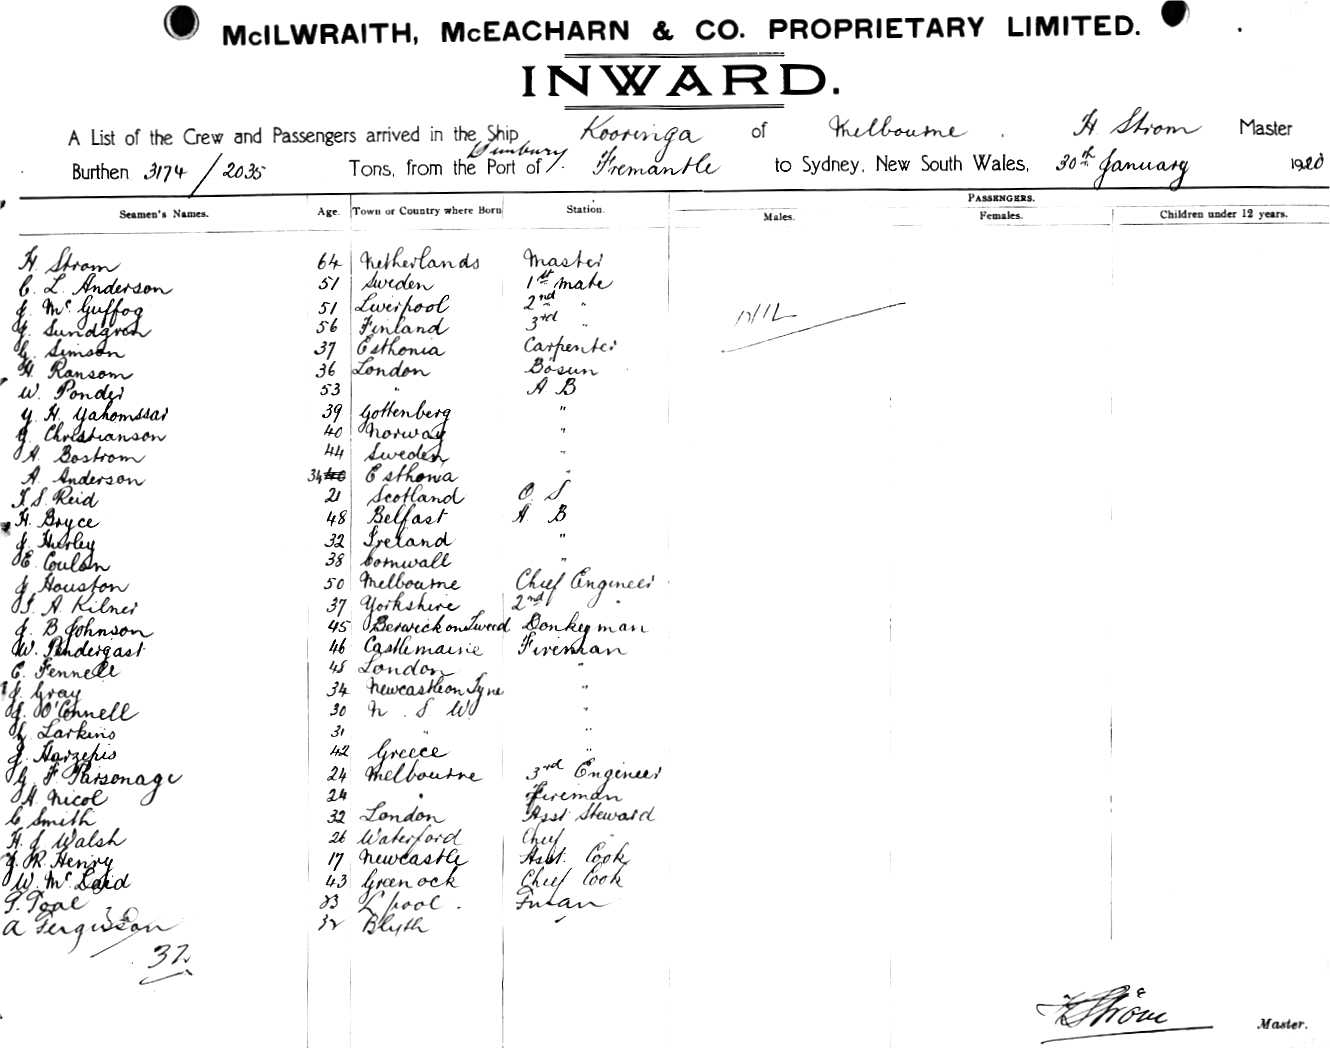 McILWRAITH, McEACHARN & CO. PROPRIETARY LIMITED.
INWARD.
A List of the Crew and Passengers arrived in the Ship Kooringa of Melbourne. H Strom Master
Burthen 3174/2035 Tons, from the Port of Bunbury / Fremantle to Sydney, New South Wales, 30th January 1920
PASSENGERS.
Seamen's Names. Age. Town or Country where Born Station. Males. Females. Children under 12 years.
H. Strom 64 Netherlands Master
C. L. Anderson 51 Sweden 1st Mate
J. McGuffog 51 Liverpool 2nd "
J. Sundgren 56 Finland 3rd "
G. Simson 37 Esthonia Carpenter
H. Ransom 36 London Bosun
W. Ponder 53 " A B
Y. H. Yahomssai 39 Gottenberg "
J. Christianson 40 Norway "
A. Bostrom 44 Sweden "
A. Anderson 34 Esthonia "
T. S. Reid 21 Scotland O. S
H. Bryce 48 Belfast A B
J. Hurley 32 Ireland "
E. Coulon 38 Cornwall "
J Houston 50 Melbourne Chief Engineer
S. A. Kilner 37 Yorkshire 2nd "
J. B Johnson 45 Berwick on Tweed Donkeyman
W. Pendergast 46 Castlemaine Fireman
C. Fennell 45 London "
J. Gray 34 Newcastle on Tyne "
J. O'Connell 30 N. S W "
Larkins 31 " "
J. Harzepis 42 Greece "
G F. Parsonage 24 Melbourne 3rd Engineer
A. Nicol 24 " Fireman
C. Smith 32 London Asst Steward
H. J Walsh 26 Waterford Chief "
J. R. Henry 17 Newcastle Asst. Cook
W. McLaid 43 Greenock Chief Cook
T. Toal 23 L'pool.
A Fergusson 32 Blyth "
NIL
32
H Strom Master.